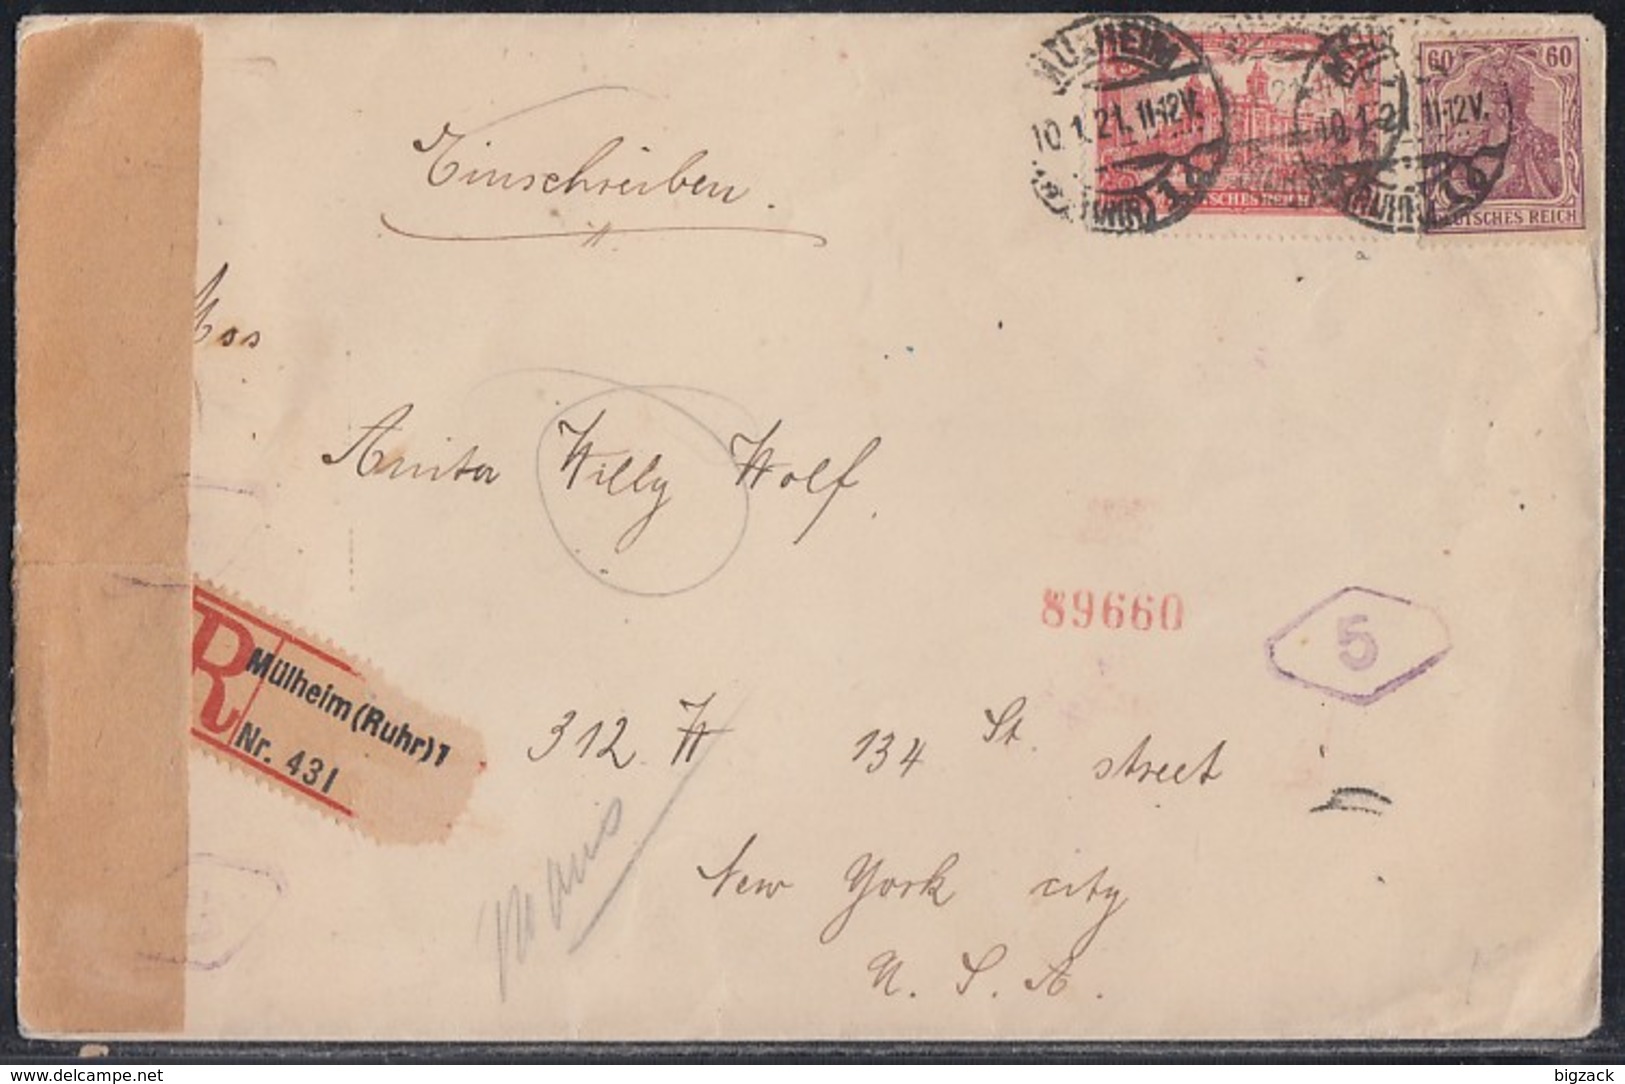 MÜLHEIM
10.1.21. 11-12V.
(RUHR) 1
10.1.21. 11-12V.
(RUHR) 1
60 60
DEUTSCHES REICH
DEUTSCHES REICH
Einschreiben.
Willy Wolf.
89660
5
R
Mülheim (Ruhr) 1
Nr. 431
312 W 134 St. street
New York city
U. S. A.
delcampe.net
bigzack